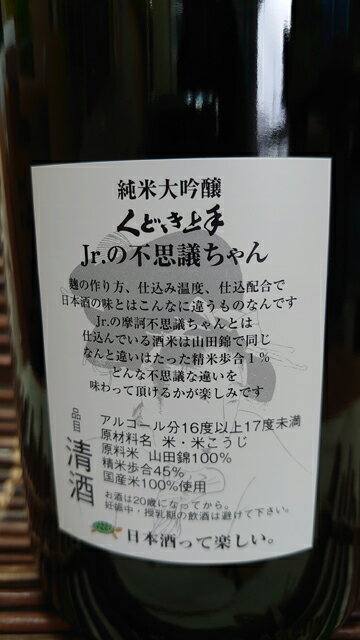 純米大吟醸
くどき上手
Jr.の不思議ちゃん
麹の作り方、仕込み温度、仕込配合で
日本酒の味とはこんなに違うものなんです
Jr.の摩訶不思議ちゃんとは
仕込んでいる酒米は山田錦で同じ
なんと違いはたった精米歩合1%
どんな不思議な違いを
味わって頂けるかが楽しみです
品目 清酒
アルコール分16度以上17度未満
原材料名 米・米こうじ
原料米 山田錦100%
精米歩合45%
国産米100%使用
お酒は20歳になってから。
妊娠中・授乳期の飲酒は避けて下さい。
日本酒って楽しい。